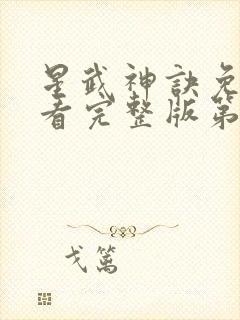 星武神訣免
看完整版第
戈篱